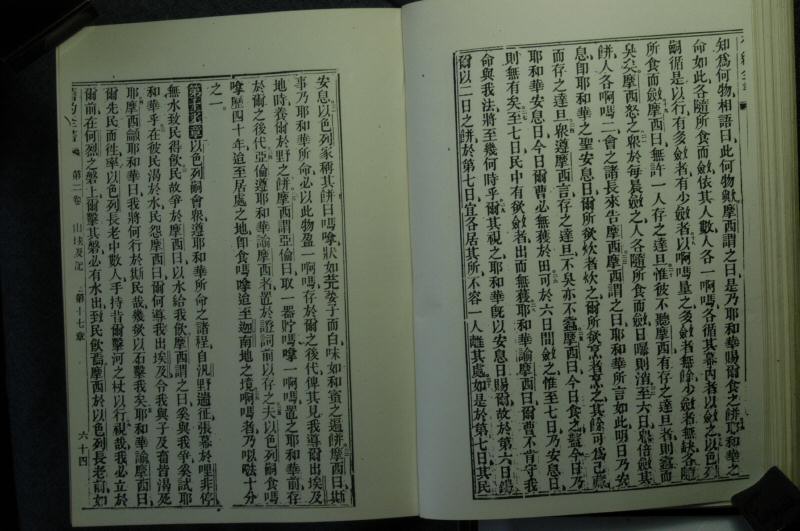 知爲何物相語曰此何物歟摩西謂之曰是乃耶和華賜爾食之餅耶和華之
命如此各隨所食而斂依其人數人各一啊嗎各循其幕內者以斂之以色列
嗣循是以行有多斂者有少斂者以啊嗎量之多斂者無餘少斂者無缺各隨
所食而斂摩西曰無許一人存之達旦惟彼不聽摩西有存之達旦者則蠹而
臭矣摩西怒之衆於每晨斂之人各隨所食而斂日曝則消至六日衆倍斂其
餅人各啊嗎二會之諸長來告摩西摩西謂之曰耶和華所言如此明日乃安
息卽耶和華之聖安息日爾所欲炊者炊之爾所欲烹者烹之其餘可爲己藏
而存之達旦衆遵摩西言存之達旦不臭亦不蠹摩西曰今日食之蓋今日乃
耶和華安息日今日爾曹必無獲於田可於六日間斂之惟至七日乃安息日
則無有矣至七日民中有欲斂者出而無獲耶和華諭摩西曰爾曹不肯守我
命與我法將至幾何時乎爾其視之耶和華旣以安息日賜爾故於第六日錫
爾以二日之餅於第七日宜各居其所不容一人離其處如是於第七日其民
安息以色列家稱其餅曰嗎嗱狀如芫荽子而白味如和蜜之薄餅摩西曰斯
事乃耶和華所命必以此物盈一啊嗎存於爾之後代俾其見我導爾出埃及
地時養爾於野之餅摩西謂亞倫曰取一器貯嗎嗱一啊嗎置之耶和華前存
於爾之後代亞倫遵耶和華諭摩西者置於證詞前以存之夫以色列嗣食嗎
嗱歷四十年迨至居處之地卽食嗎嗱迨至迦南地之境啊嗎者乃以𠵽十分
之一
第十七章以色列嗣會衆遵耶和華所命之諸程自汛野遄征張幕於哩非停
無水致民得飲民故爭於摩西曰以水給我飲摩西謂之曰奚與我爭奚試耶
和華乎在彼民渴於水民怨摩西曰爾何導我出埃及令我與子及畜皆渴死
耶摩西籲耶和華曰我將何行於斯民哉幾欲以石擊我矣耶和華諭摩西曰
爾先民而往率以色列長老中數人手持昔爾擊河之杖以行視哉我必立於
爾前在何烈之磐上爾擊其磐必有水出致民飲焉摩西於以色列長老前如
舊約全書 第二卷 出埃及記 第十七章 六十四